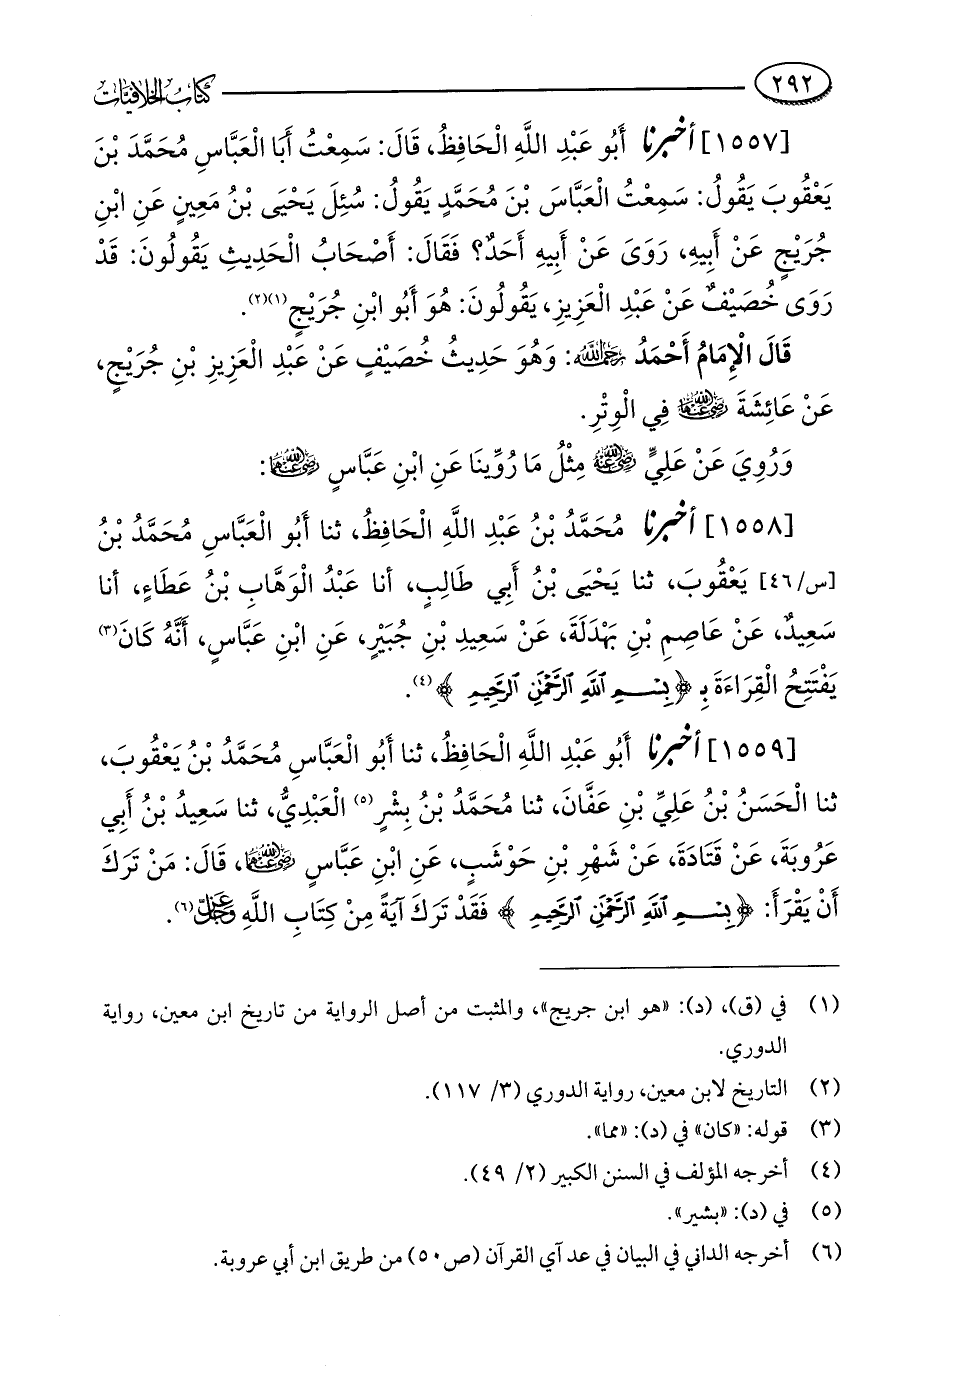 ٢٩٢ كتاب الخلافيات
[١٥٥٧] أخبرنا أَبُو عَبْدِ اللَّهِ الْحَافِظُ، قَالَ: سَمِعْتُ أَبَا الْعَبَّاسِ مُحَمَّدَ بْنَ
يَعْقُوبَ يَقُولُ: سَمِعْتُ الْعَبَّاسَ بْنَ مُحَمَّدٍ يَقُولُ: سُئِلَ يَحْيَى بْنُ مَعِينٍ عَنِ ابْنِ
جُرَيْجٍ عَنْ أَبِيهِ، رَوَىَ عَنْ أَبِيهِ أَحَدٌ؟ فَقَالَ: أَصْحَابُ الْحَدِيثِ يَقُولُونَ: قَدْ
رَوَى خُصَيْفٌ عَنْ عَبْدِ الْعَزِيزِ، يَقُولُونَ: هُوَ أَبُو ابْنِ جُرَيْجٍ(١)(٢).
قَالَ الْإِمَامُ أَحْمَدُ رحمه الله: وَهُوَ حَدِيثُ خُصَيْفٍ عَنْ عَبْدِ الْعَزِيزِ بْنِ جُرَيْجٍ،
عَنْ عَائِشَةَ رضي الله عنها فِي الْوِتْرِ.
وَرُوِيَ عَنْ عَلِيٍّ رضي الله عنه مِثْلُ مَا رُوِّينَا عَنِ ابْنِ عَبَّاسٍ رضي الله عنهما:
[١٥٥٨] أخبرنا مُحَمَّدُ بْنُ عَبْدِ اللَّهِ الْحَافِظُ، ثنا أَبُو الْعَبَّاسِ مُحَمَّدُ بْنُ
[س/٤٦] يَعْقُوبَ، ثنا يَحْيَى بْنُ أَبِي طَالِبٍ، أنا عَبْدُ الْوَهَّابِ بْنُ عَطَاءٍ، أنا
سَعِيدٌ، عَنْ عَاصِمِ بْنِ بَهْدَلَةَ، عَنْ سَعِيدِ بْنِ جُبَيْرٍ، عَنِ ابْنِ عَبَّاسٍ، أَنَّهُ كَانَ(٣)
يَفْتَتِحُ الْقِرَاءَةَ بِـ ﴿بِسْمِ ٱللَّهِ ٱلرَّحْمَٰنِ ٱلرَّحِيمِ﴾(٤).
[١٥٥٩] أخبرنا أَبُو عَبْدِ اللَّهِ الْحَافِظُ، ثنا أَبُو الْعَبَّاسِ مُحَمَّدُ بْنُ يَعْقُوبَ،
ثنا الْحَسَنُ بْنُ عَلِيِّ بْنِ عَفَّانَ، ثنا مُحَمَّدُ بْنُ بِشْرٍ(٥) الْعَبْدِيُّ، ثنا سَعِيدُ بْنُ أَبِي
عَرُوبَةَ، عَنْ قَتَادَةَ، عَنْ شَهْرِ بْنِ حَوْشَبٍ، عَنِ ابْنِ عَبَّاسٍ رضي الله عنهما، قَالَ: مَنْ تَرَكَ
أَنْ يَقْرَأَ: ﴿بِسْمِ ٱللَّهِ ٱلرَّحْمَٰنِ ٱلرَّحِيمِ﴾ فَقَدْ تَرَكَ آيَةً مِنْ كِتَابِ اللَّهِ عز وجل(٦).
(١) في (ق)، (د): «هو ابن جريج»، والمثبت من أصل الرواية من تاريخ ابن معين، رواية
الدوري.
(٢) التاريخ لابن معين، رواية الدوري (٣/ ١١٧).
(٣) قوله: «كان» في (د): «مما».
(٤) أخرجه المؤلف في السنن الكبير (٢/ ٤٩).
(٥) في (د): «بشير».
(٦) أخرجه الداني في البيان في عد آي القرآن (ص٥٠) من طريق ابن أبي عروبة.